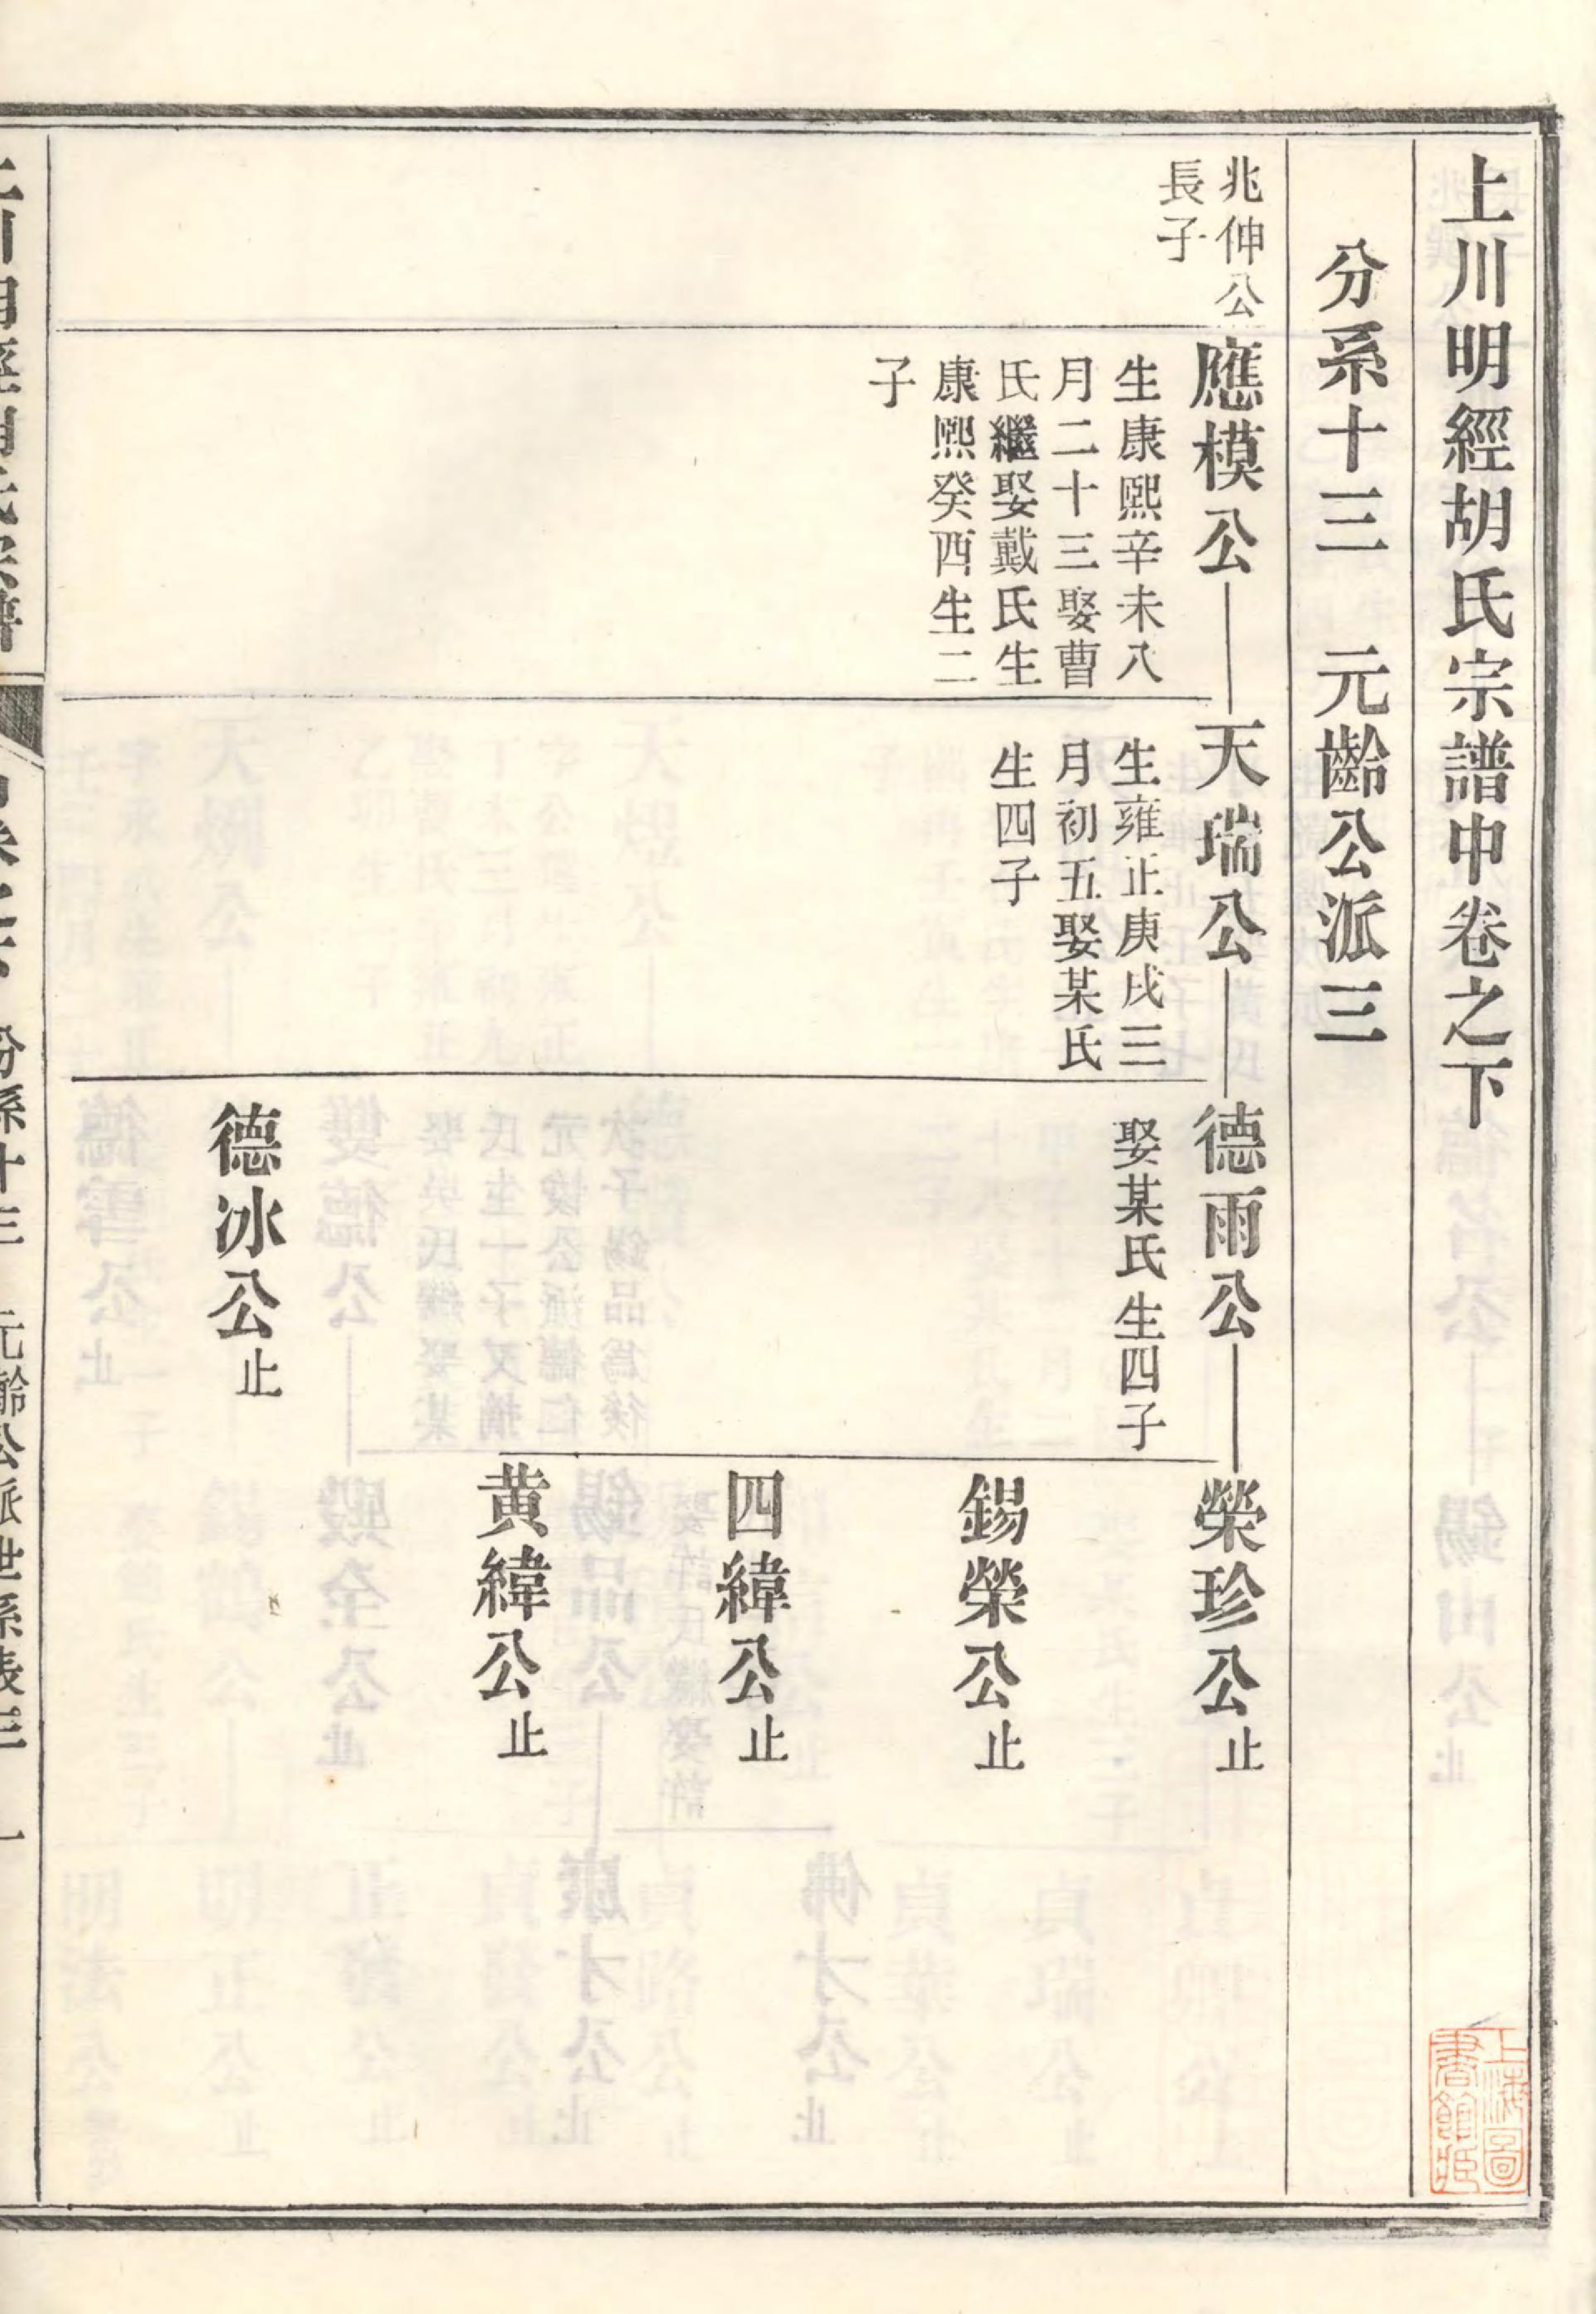 上川明經胡氏宗譜中卷之下
分系十三　元齡公派三
兆伸公
長子
應模公
生康熙辛未八
月二十三娶曹
氏繼娶戴氏生
康熙癸酉生二
子
天瑞公
生雍正庚戌三
月初五娶某氏
生四子
德雨公
娶某氏生四子
榮珍公止
錫榮公止
四緯公止
黃緯公止
德冰公止
上海圖
書館藏
分系十三　元齡公派世系表三　一